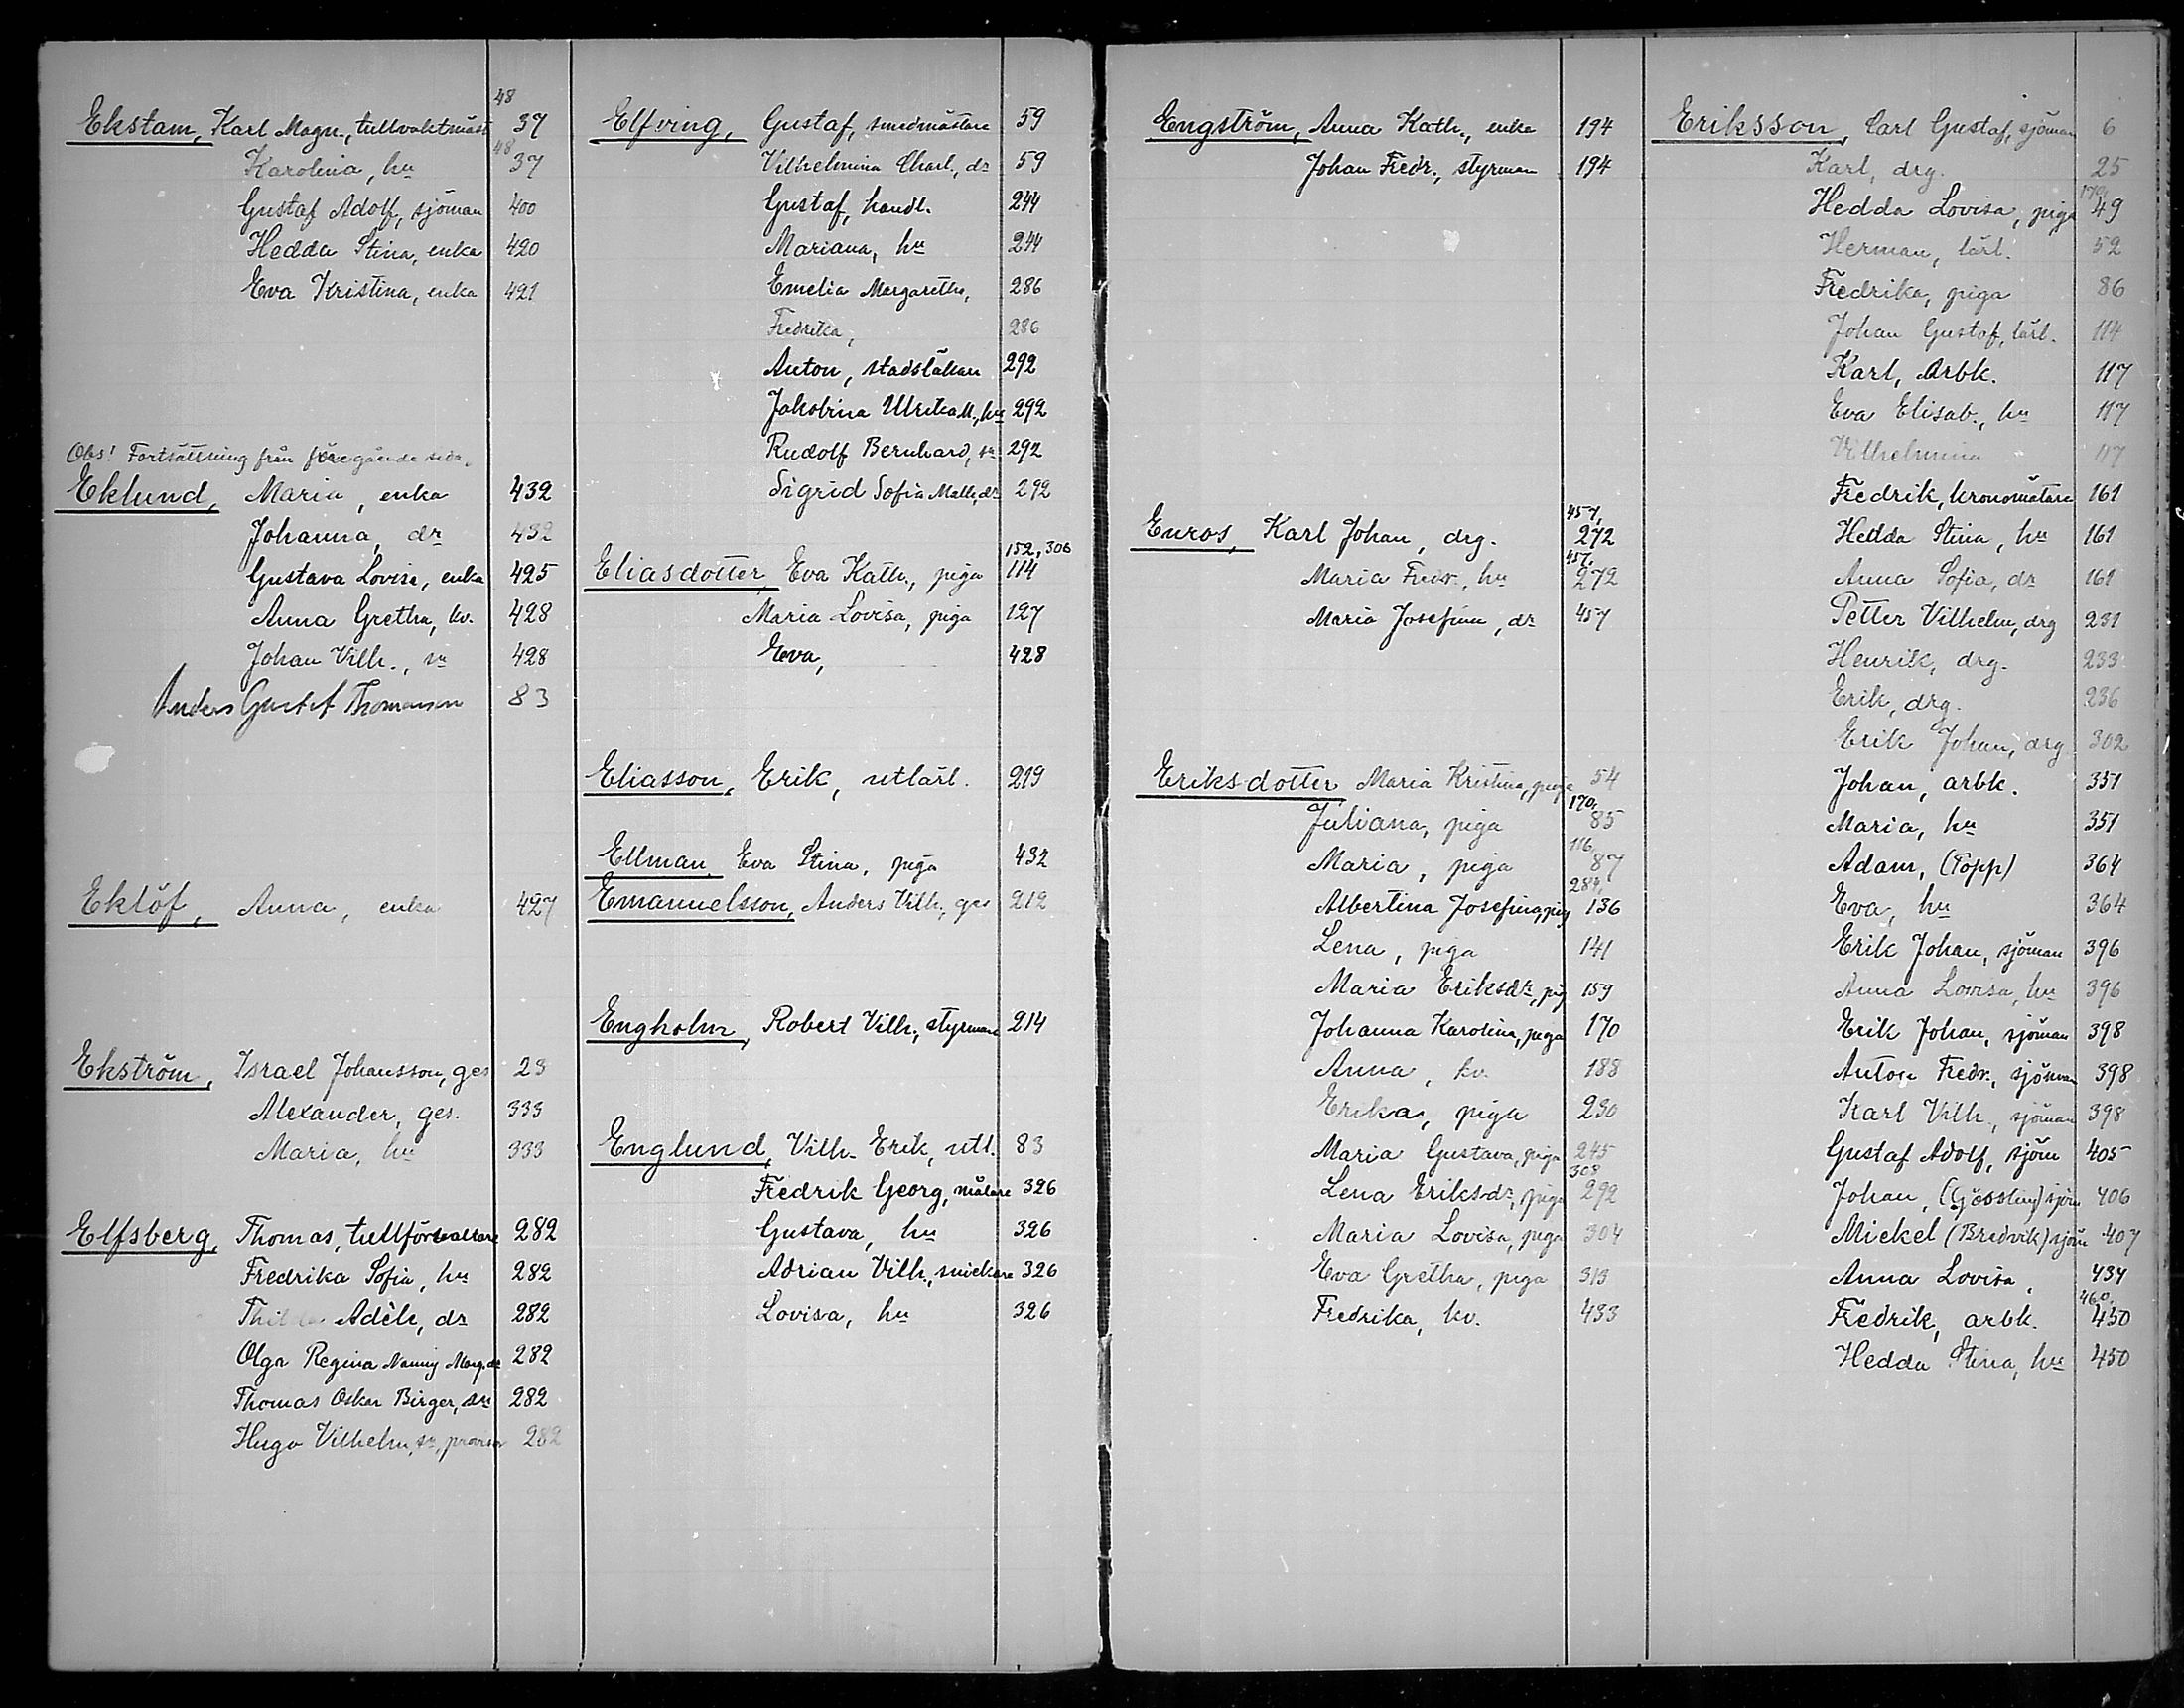 48
Ekstam, Karl Magn., tullvaktmäst 37
48
Karolina, hu 37
Gustaf Adolf, sjöman 400
Hedda Stina, enka 420
Eva Kristina, enka 421
Obs! Fortsättning från föregående sida.
Eklund, Maria, enka 432
Johanna, dr 432
Gustava Lovisa, enka 425
Anna Gretha, kv. 428
Johan Vilh., sn 428
Anders Gustaf Thomasson 83
Eklöf, Anna, enka 427
Ekström, Israel Johansson, ges 23
Alexander, ges. 333
Maria, hu 333
Elfsberg, Thomas, tullförvaltare 282
Fredrika Sofia, hu 282
Thilda Adèle, dr 282
Olga Regina Nanny Marg. dr 282
Thomas Oskar Birger, sn 282
Hugo Vilhelm, sn, provisor 282
Elfving, Gustaf, smedmästare 59
Vilhelmina Charl., dr 59
Gustaf, handl. 244
Mariana, hu 244
Emelia Margaretha, 286
Fredrika, 286
Anton, stadsläkare 292
Jakobina Ulrika M., hu 292
Rudolf Bernhard, sn 292
Sigrid Sofia Math., dr 292
152, 306
Eliasdotter, Eva Kath., piga 114
Maria Lovisa, piga 127
Eva, 428
Eliasson, Erik, utlärl. 219
Ellman, Eva Stina, piga 432
Emanuelsson, Anders Vilh., ges 212
Engholm, Robert Vilh., styrman 214
Englund, Vilh. Erik, utl. 83
Fredrik Georg, målare 326
Gustava, hu 326
Adrian Vilh., snickare 326
Lovisa, hu 326
Engström, Anna Kath., enka 194
Johan Fredr., styrman 194
457,
Enros, Karl Johan, drg. 272
457,
Maria Fredr., hu 272
Maria Josefina, dr 457
Eriksdotter Maria Kristina, piga 54
170,
Juliana, piga 85
116,
Maria, piga 87
284,
Albertina Josefina, pig 136
Lena, piga 141
Maria Eriksdr, pig 159
Johanna Karolina, piga 170
Anna, kv. 188
Erika, piga 230
Maria Gustava, piga 245
308
Lena Eriksdr, piga 292
Maria Lovisa, piga 304
Eva Gretha, piga 313
Fredrika, kv. 433
Eriksson, Carl Gustaf, sjöman 6
Karl, drg. 25
179,
Hedda Lovisa, piga 49
Herman, lärl. 52
Fredrika, piga 86
Johan Gustaf, lärl. 114
Karl, Arbk. 117
Eva Elisab., hu 117
Vilhelmina 117
Fredrik, kronomätare 161
Hedda Stina, hu 161
Anna Sofia, dr 161
Petter Vilhelm, drg 231
Henrik, drg. 233
Erik, drg. 236
Erik Johan, drg 302
Johan, arbk. 351
Maria, hu 351
Adam, (Topp) 364
Eva, hu 364
Erik Johan, sjöman 396
Anna Lovisa, hu 396
Erik Johan, sjöman 398
Anton Fredr., sjöman 398
Karl Vilh., sjöman 398
Gustaf Adolf, sjöm 405
Johan, (Gössling) sjöm 406
Mickel (Bredvik) sjöm 407
Anna Lovisa, 434
460,
Fredrik, arbk. 450
Hedda Stina, hu 450